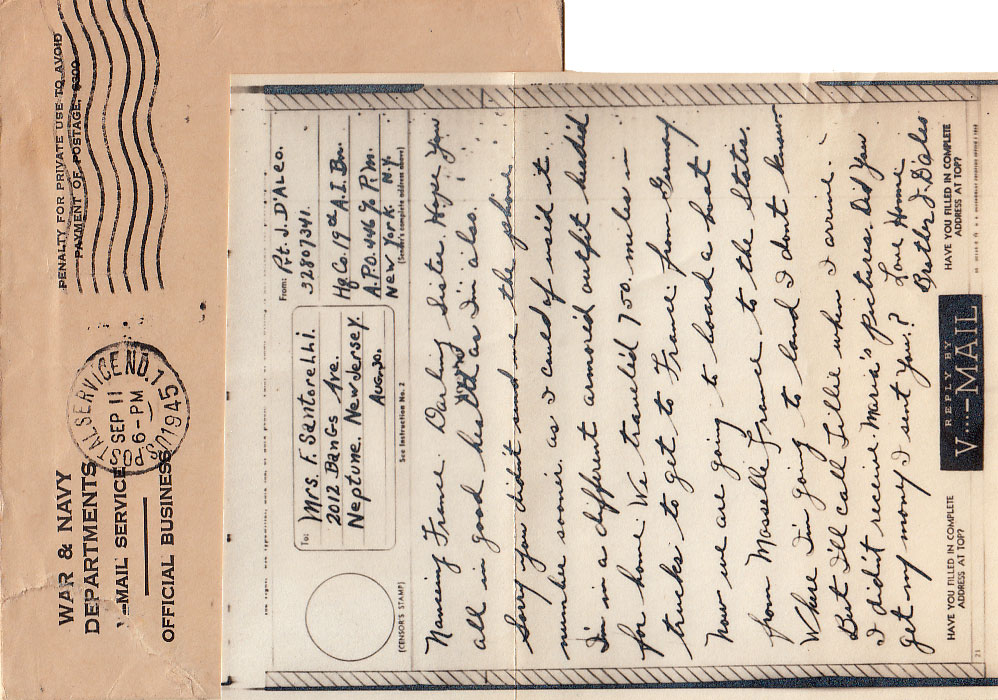 WAR & NAVY
DEPARTMENTS
V-MAIL SERVICE
OFFICIAL BUSINESS
POSTAL SERVICE NO. 1
SEP 11
6-PM
1945
PENALTY FOR PRIVATE USE TO AVOID
PAYMENT OF POSTAGE, $300
To:
Mrs. F. Santorelli.
2012 Bangs Ave.
Neptune, New Jersey.
Aug. 30.
From:
Pvt. J. D'Aleo.
32807341.
Hq. Co. 19th A.I. Bn.
A.P.O. 446 c/o P.M.
New York N.Y.
(Sender's complete address above)
(CENSOR'S STAMP)
See Instruction No. 2
France. Darling Sister. Hope You
all in good health as I'm also.
Sorry you didn't send me the phone
number sooner. as I could of used it.
I'm in a different armored outfit headid
for home. We travelid 750. miles in
trucks to get to France from Germany
Now we are going to load a boat
from France to the States.
Where I'm going to land I dont know.
But I'll call Lillie when I arrive.
I didn't receive Maria's pictures. Did You
get my money I sent You.?
Love Home
Brother J. D'Aleo
HAVE YOU FILLED IN COMPLETE
ADDRESS AT TOP?
REPLY BY
V....-MAIL
HAVE YOU FILLED IN COMPLETE
ADDRESS AT TOP?
21